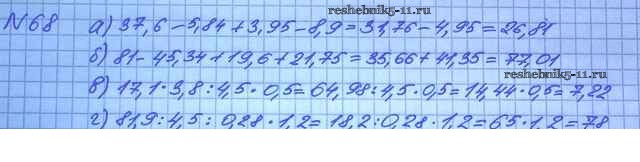 reshebnik5-11.ru
№68 а) 37,6 - 5,84 + 3,95 - 8,9 = 31,76 - 4,95 = 26,81
б) 81 - 45,34 + 19,6 + 21,75 = 35,66 + 41,35 = 77,01
reshebnik5-11.ru
в) 17,1 · 3,8 : 4,5 · 0,5 = 64,98 : 4,5 · 0,5 = 14,44 · 0,5 = 7,22
г) 81,9 : 4,5 : 0,28 · 1,2 = 18,2 : 0,28 · 1,2 = 65 · 1,2 = 78